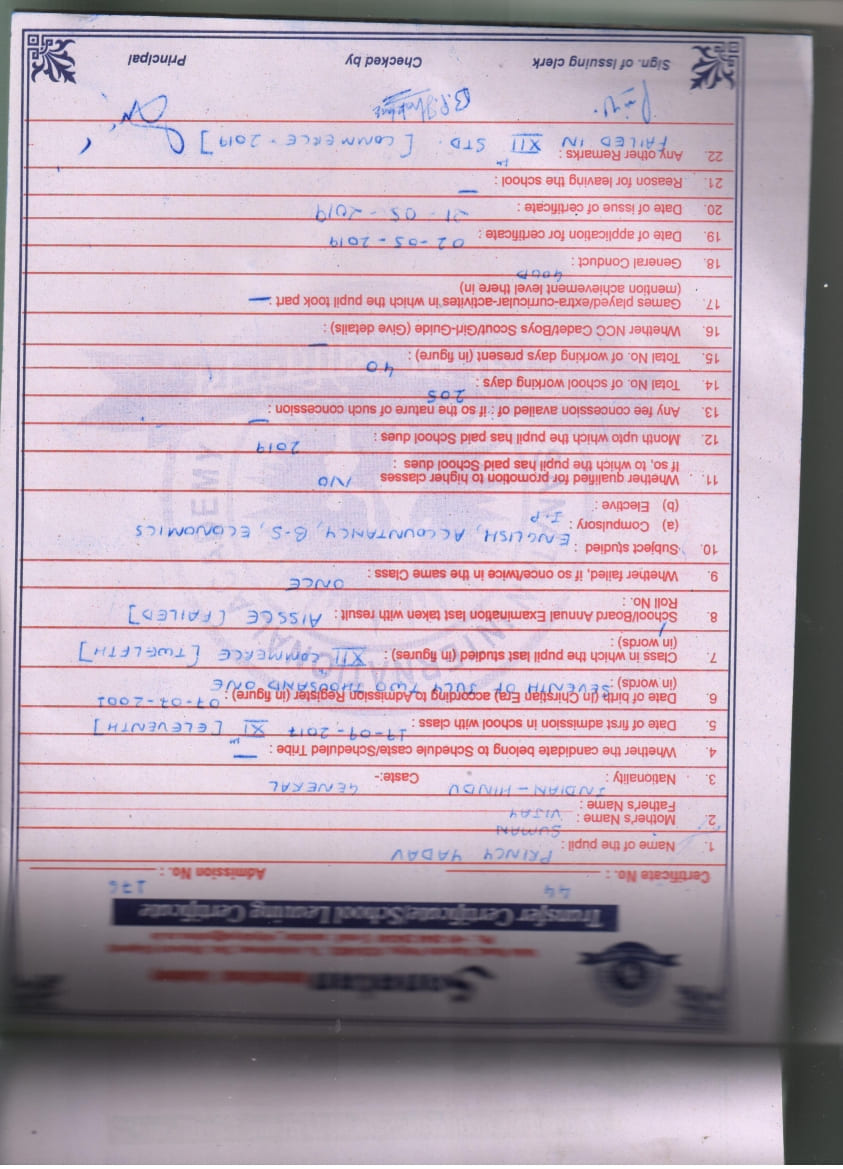 Transfer Certificate/School Leaving Certificate
Certificate No. : 44 Admission No. : 176
1. Name of the pupil : PRINCY YADAV
2. Mother's Name : SUMAN
Father's Name : VIJAY
3. Nationality : INDIAN - HINDU Caste:- GENERAL
4. Whether the candidate belong to Schedule caste/Scheduled Tribe : —
5. Date of first admission in school with class : XI [ELEVENTH]
6. Date of birth (in Christian Era) according to Admission Register (in figure) : 07-07-2001
(in words) : SEVENTH OF JULY TWO THOUSAND ONE
7. Class in which the pupil last studied (in figures) : XII COMMERCE [TWELFTH]
(in words) :
8. School/Board Annual Examination last taken with result : AISSCE [FAILED]
Roll No. :
9. Whether failed, if so once/twice in the same Class : ONCE
10. Subject studied :
(a) Compulsory : ENGLISH, ACCOUNTANCY, B-S, ECONOMICS
(b) Elective : I.P
11. Whether qualified for promotion to higher classes NO
If so, to which the pupil has paid School dues :
12. Month upto which the pupil has paid School dues : 2019
13. Any fee concession availed of : if so the nature of such concession : —
14. Total No. of school working days : 205
15. Total No. of working days present (in figure) : 40
16. Whether NCC Cadet/Boys Scout/Girl-Guide (Give details) : —
17. Games played/extra-curricular-activites in which the pupil took part : —
(mention achievement level there in)
18. General Conduct : GOOD
19. Date of application for certificate : 02-05-2019
20. Date of issue of certificate : 21-05-2019
21. Reason for leaving the school : —
22. Any other Remarks : FAILED IN XII th STD. [COMMERCE - 2019]
Sign. of issuing clerk Checked by Principal